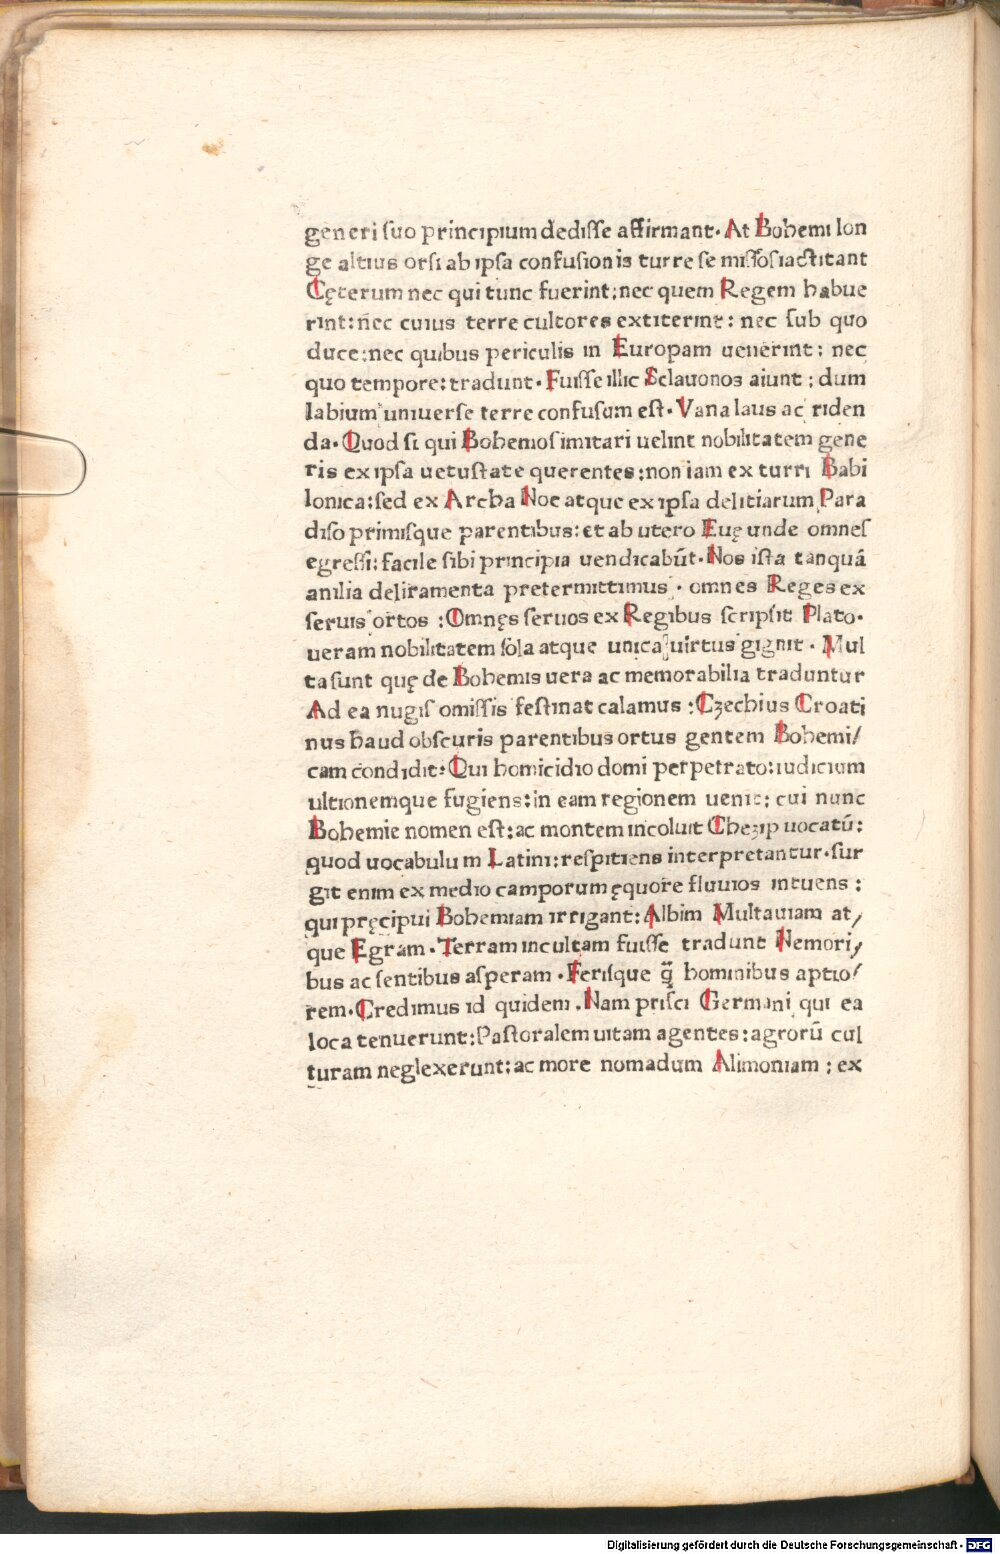 generi ſuo principium dediſſe affirmant. At Bohemi lon
ge altius orſi ab ipſa confuſionis turre ſe miſſoſ iactitant
Cęterum nec qui tunc fuerint: nec quem Regem habue
rint: nec cuius terre cultores extiterint: nec ſub quo
duce: nec quibus periculis in Europam uenerint: nec
quo tempore: tradunt. Fuiſſe illic Sclauonos aiunt: dum
labium uniuerſe terre confuſum eſt. Vana laus ac riden
da. Quod ſi qui Bohemoſ imitari uelint nobilitatem gene
ris ex ipſa uetuſtate querentes: non iam ex turri Babi
lonica: ſed ex Archa Noe atque ex ipſa delitiarum Para
diſo primiſque parentibus: et ab utero Euę unde omneſ
egreſſi: facile ſibi principia uendicabūt. Nos iſta tanquā
anilia deliramenta pretermittimus. omnes Reges ex
ſeruis ortos: Omnęs ſeruos ex Regibus ſcripſit Plato.
ueram nobilitatem ſola atque unica uirtus gignit. Mul
ta ſunt quę de Bohemis uera ac memorabilia traduntur
Ad ea nugiſ omiſſis feſtinat calamus: Czechius Croati
nus haud obſcuris parentibus ortus gentem Bohemi/
cam condidit: Qui homicidio domi perpetrato: iudicium
ultionemque fugiens: in eam regionem uenit: cui nunc
Bohemie nomen eſt: ac montem incoluit Chezip uocatū:
quod uocabulum Latini: reſpitiens interpretantur. ſur
git enim ex medio camporum ęquore fluuios intuens:
qui pręcipui Bohemiam irrigant: Albim Multauiam at/
que Egram. Terram incultam fuiſſe tradunt Nemori/
bus ac ſentibus aſperam. Feriſque q̄ hominibus aptio/
rem. Credimus id quidem. Nam priſci Germani qui ea
loca tenuerunt: Paſtoralem uitam agentes: agrorū cul
turam neglexerunt: ac more nomadum Alimoniam: ex
Digitalisierung gefördert durch die Deutsche Forschungsgemeinschaft - DFG